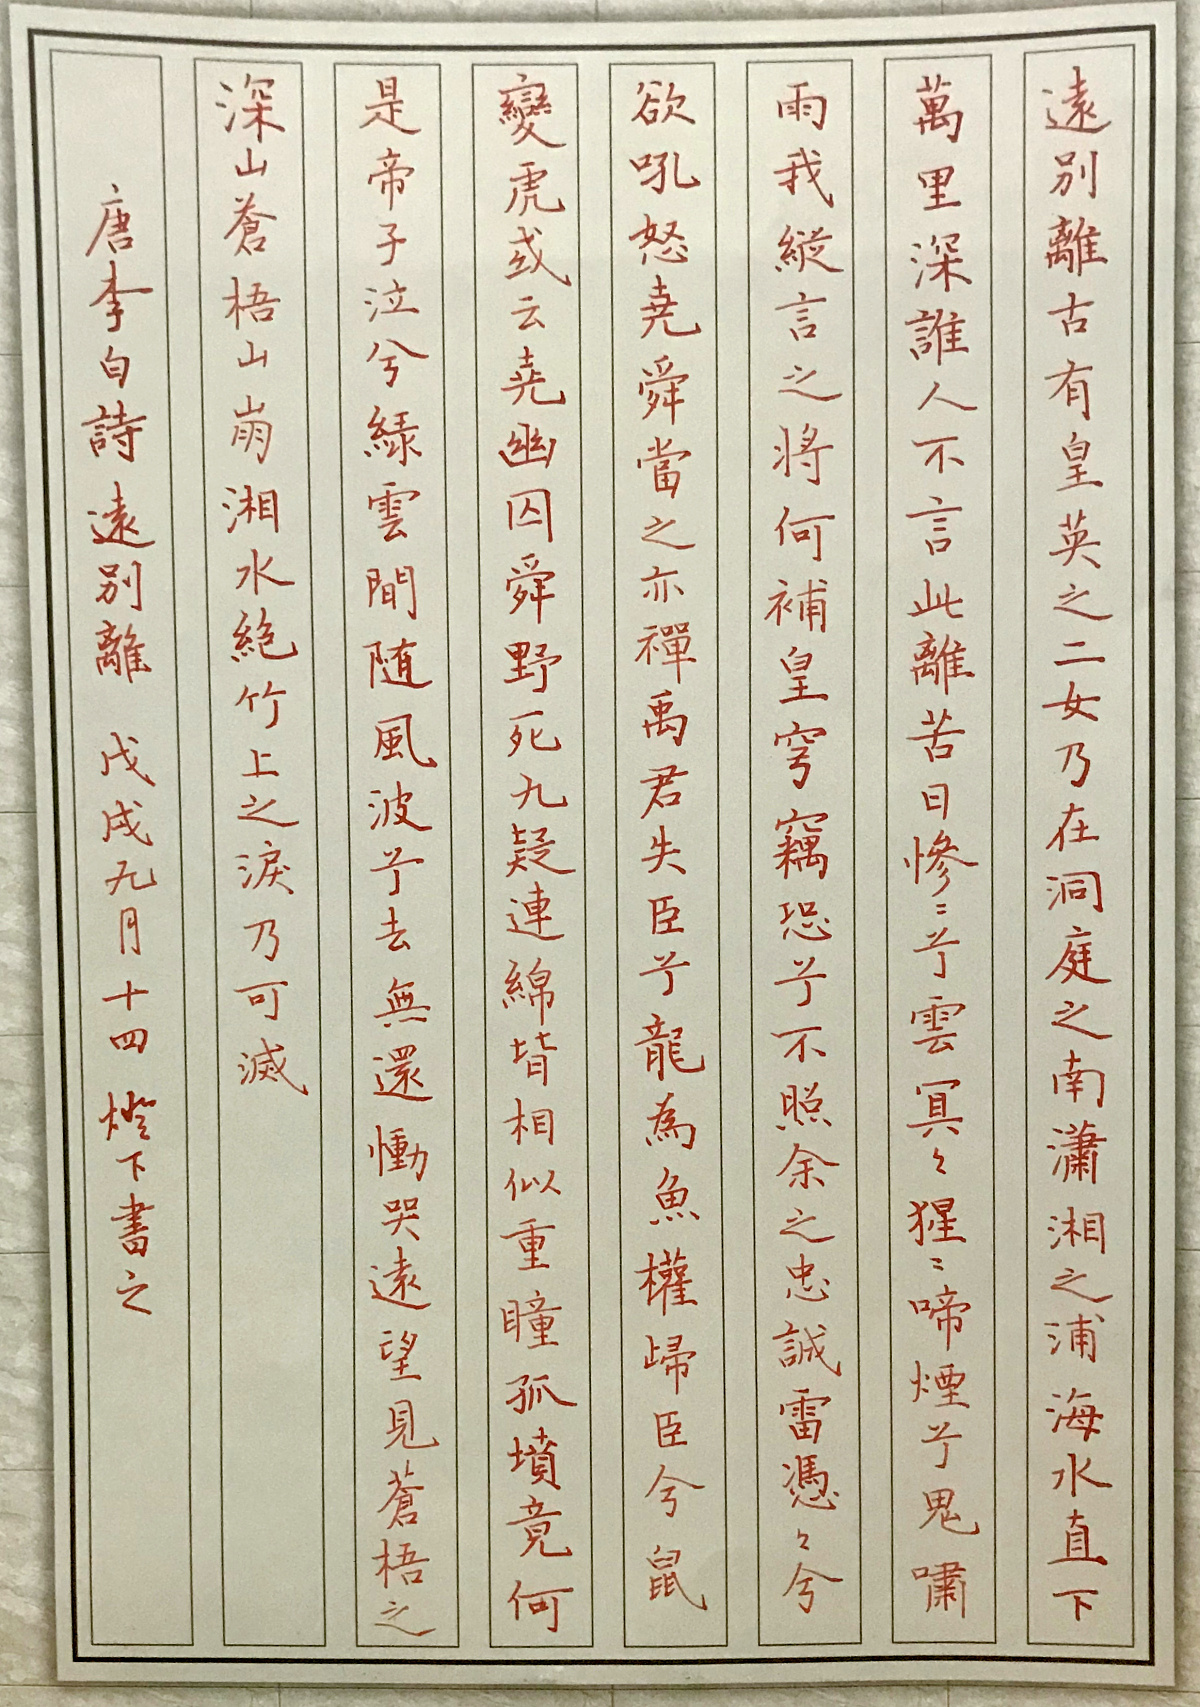 遠別離古有皇英之二女乃在洞庭之南瀟湘之浦海水直下
萬里深誰人不言此離苦日慘〻兮雲冥々猩〻啼煙兮鬼嘯
雨我縱言之將何補皇穹竊恐兮不照余之忠誠雷憑々兮
欲吼怒堯舜當之亦禪禹君失臣兮龍為魚權歸臣兮鼠
變虎或云堯幽囚舜野死九疑連綿皆相似重瞳孤墳竟何
是帝子泣兮綠雲間随風波兮去無還慟哭遠望見蒼梧之
深山蒼梧山崩湘水絕竹上之淚乃可滅
唐李白詩遠別離 戊戌九月十四燈下書之